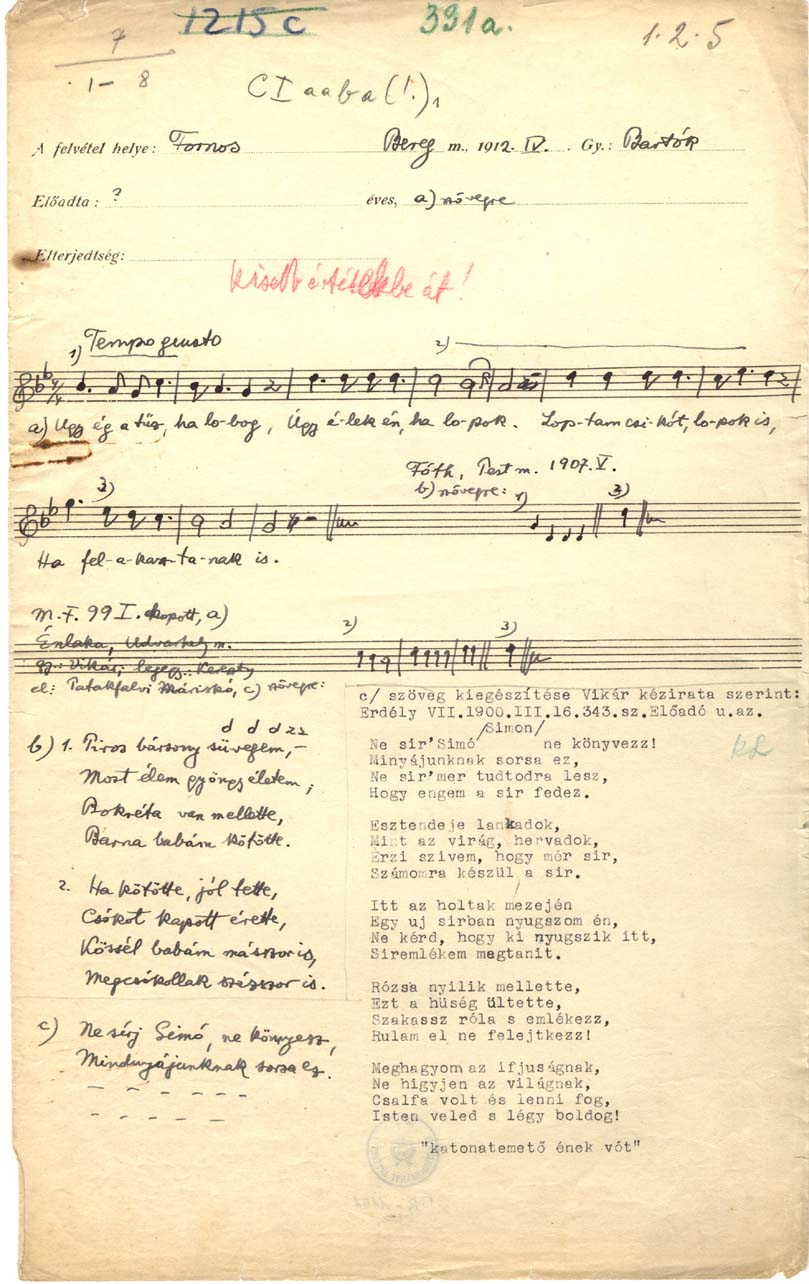 1215c 331a. 1·2·5
7
1– 8
C I a a b a (!.)₁
A felvétel helye: Fornos Bereg m., 1912. IV. Gy.: Bartók
Előadta: ? éves, a) szövegre
Elterjedtség:
1) Tempo giusto 2)
a) Úgy ég a tűz, ha lo-bog, Úgy é-lek én, ha lo-pok. Lop-tam csi-kót, lo-pok is,
Fóth, Pest m. 1907. V.
3) b) szövegre: 1) 3)
Ha fel-a-kasz-ta-nak is.
M.F. 99 I. kopott, a)
Énlaka, Udvarhely m. 2) 3)
gy. Vikár; lejegy.: Kerény
el: Patakfalvi Máriskó, c) szövegre:
c/ szöveg kiegészítése Vikár kézirata szerint:
Erdély VII.1900.III.16.343.sz.Előadó u.az.
b) 1. Piros bársony süvegem,–
Most élem gyöngyéletem;
Bokréta van mellette,
Barna babám kötötte.
2. Ha kötötte, jól tette,
Csókot kapott érette,
Kössél babám másszor is,
Megcsókollak százszor is.
c) Ne sírj Simó, ne könnyezz,
Mindnyájunknak sorsa ez.
/Simon/
Ne sir'Simó ne könyvezz!
Minyájunknak sorsa ez,
Ne sir'mer tudtodra lesz,
Hogy engem a sir fedez.
Esztendeje lankadok,
Mint az virág, hervadok,
Érzi szivem, hogy mér sir,
Számomra készül a sir.
Itt az holtak mezején
Egy uj sirban nyugszom én,
Ne kérd, hogy ki nyugszik itt,
Siremlékem megtanit.
Rózsa nyilik mellette,
Ezt a hüség ültette,
Szakassz róla s emlékezz,
Rulam el ne felejtkezz!
Meghagyom az ifjuságnak,
Ne higyjen az világnak,
Csalfa volt és lenni fog,
Isten veled s légy boldog!
"katonatemető ének vót"